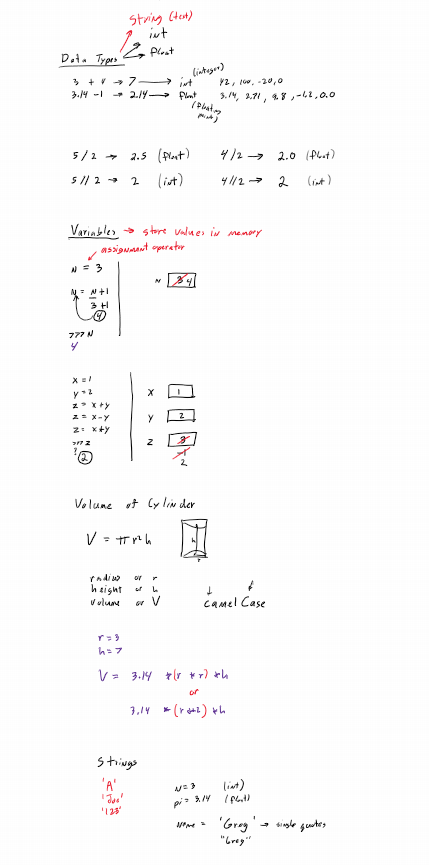 string (text)
int
float
Data Types
3 + 4 → 7 → int (integer) 42, 100, -20, 0
3.14 - 1 → 2.14 → float 3.14, 2.71, 9.8, -1.2, 0.0
(floating point)
5 / 2 → 2.5 (float) 4 / 2 → 2.0 (float)
5 // 2 → 2 (int) 4 // 2 → 2 (int)
Variables → store values in memory
assignment operator
N = 3
N 3 4
N = N + 1
3 + 1
4
>>> N
4
x = 1
y = 2
z = x + y
z = x - y
z = x * y
>>> z
? 2
X 1
Y 2
Z 3
-1
2
Volume of Cylinder
V = π r² h
h
r
radius or r
height or h
volume or V
camelCase
r = 3
h = 7
V = 3.14 * (r * r) * h
or
3.14 * (r ** 2) * h
Strings
'A'
'Joe'
'123'
N = 3 (int)
pi = 3.14 (float)
Name = 'Greg' → single quotes
"Greg"